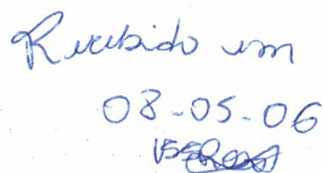 Recebido em
08-05-06